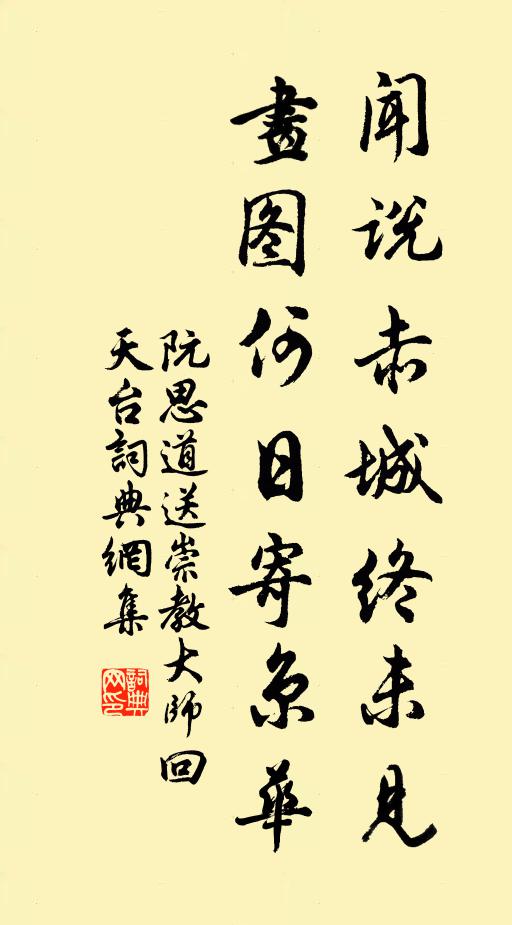 闻说赤城终未见
畫图何日寄京華
阮思道送崇教大師回
天台詞典網集
詞典网印